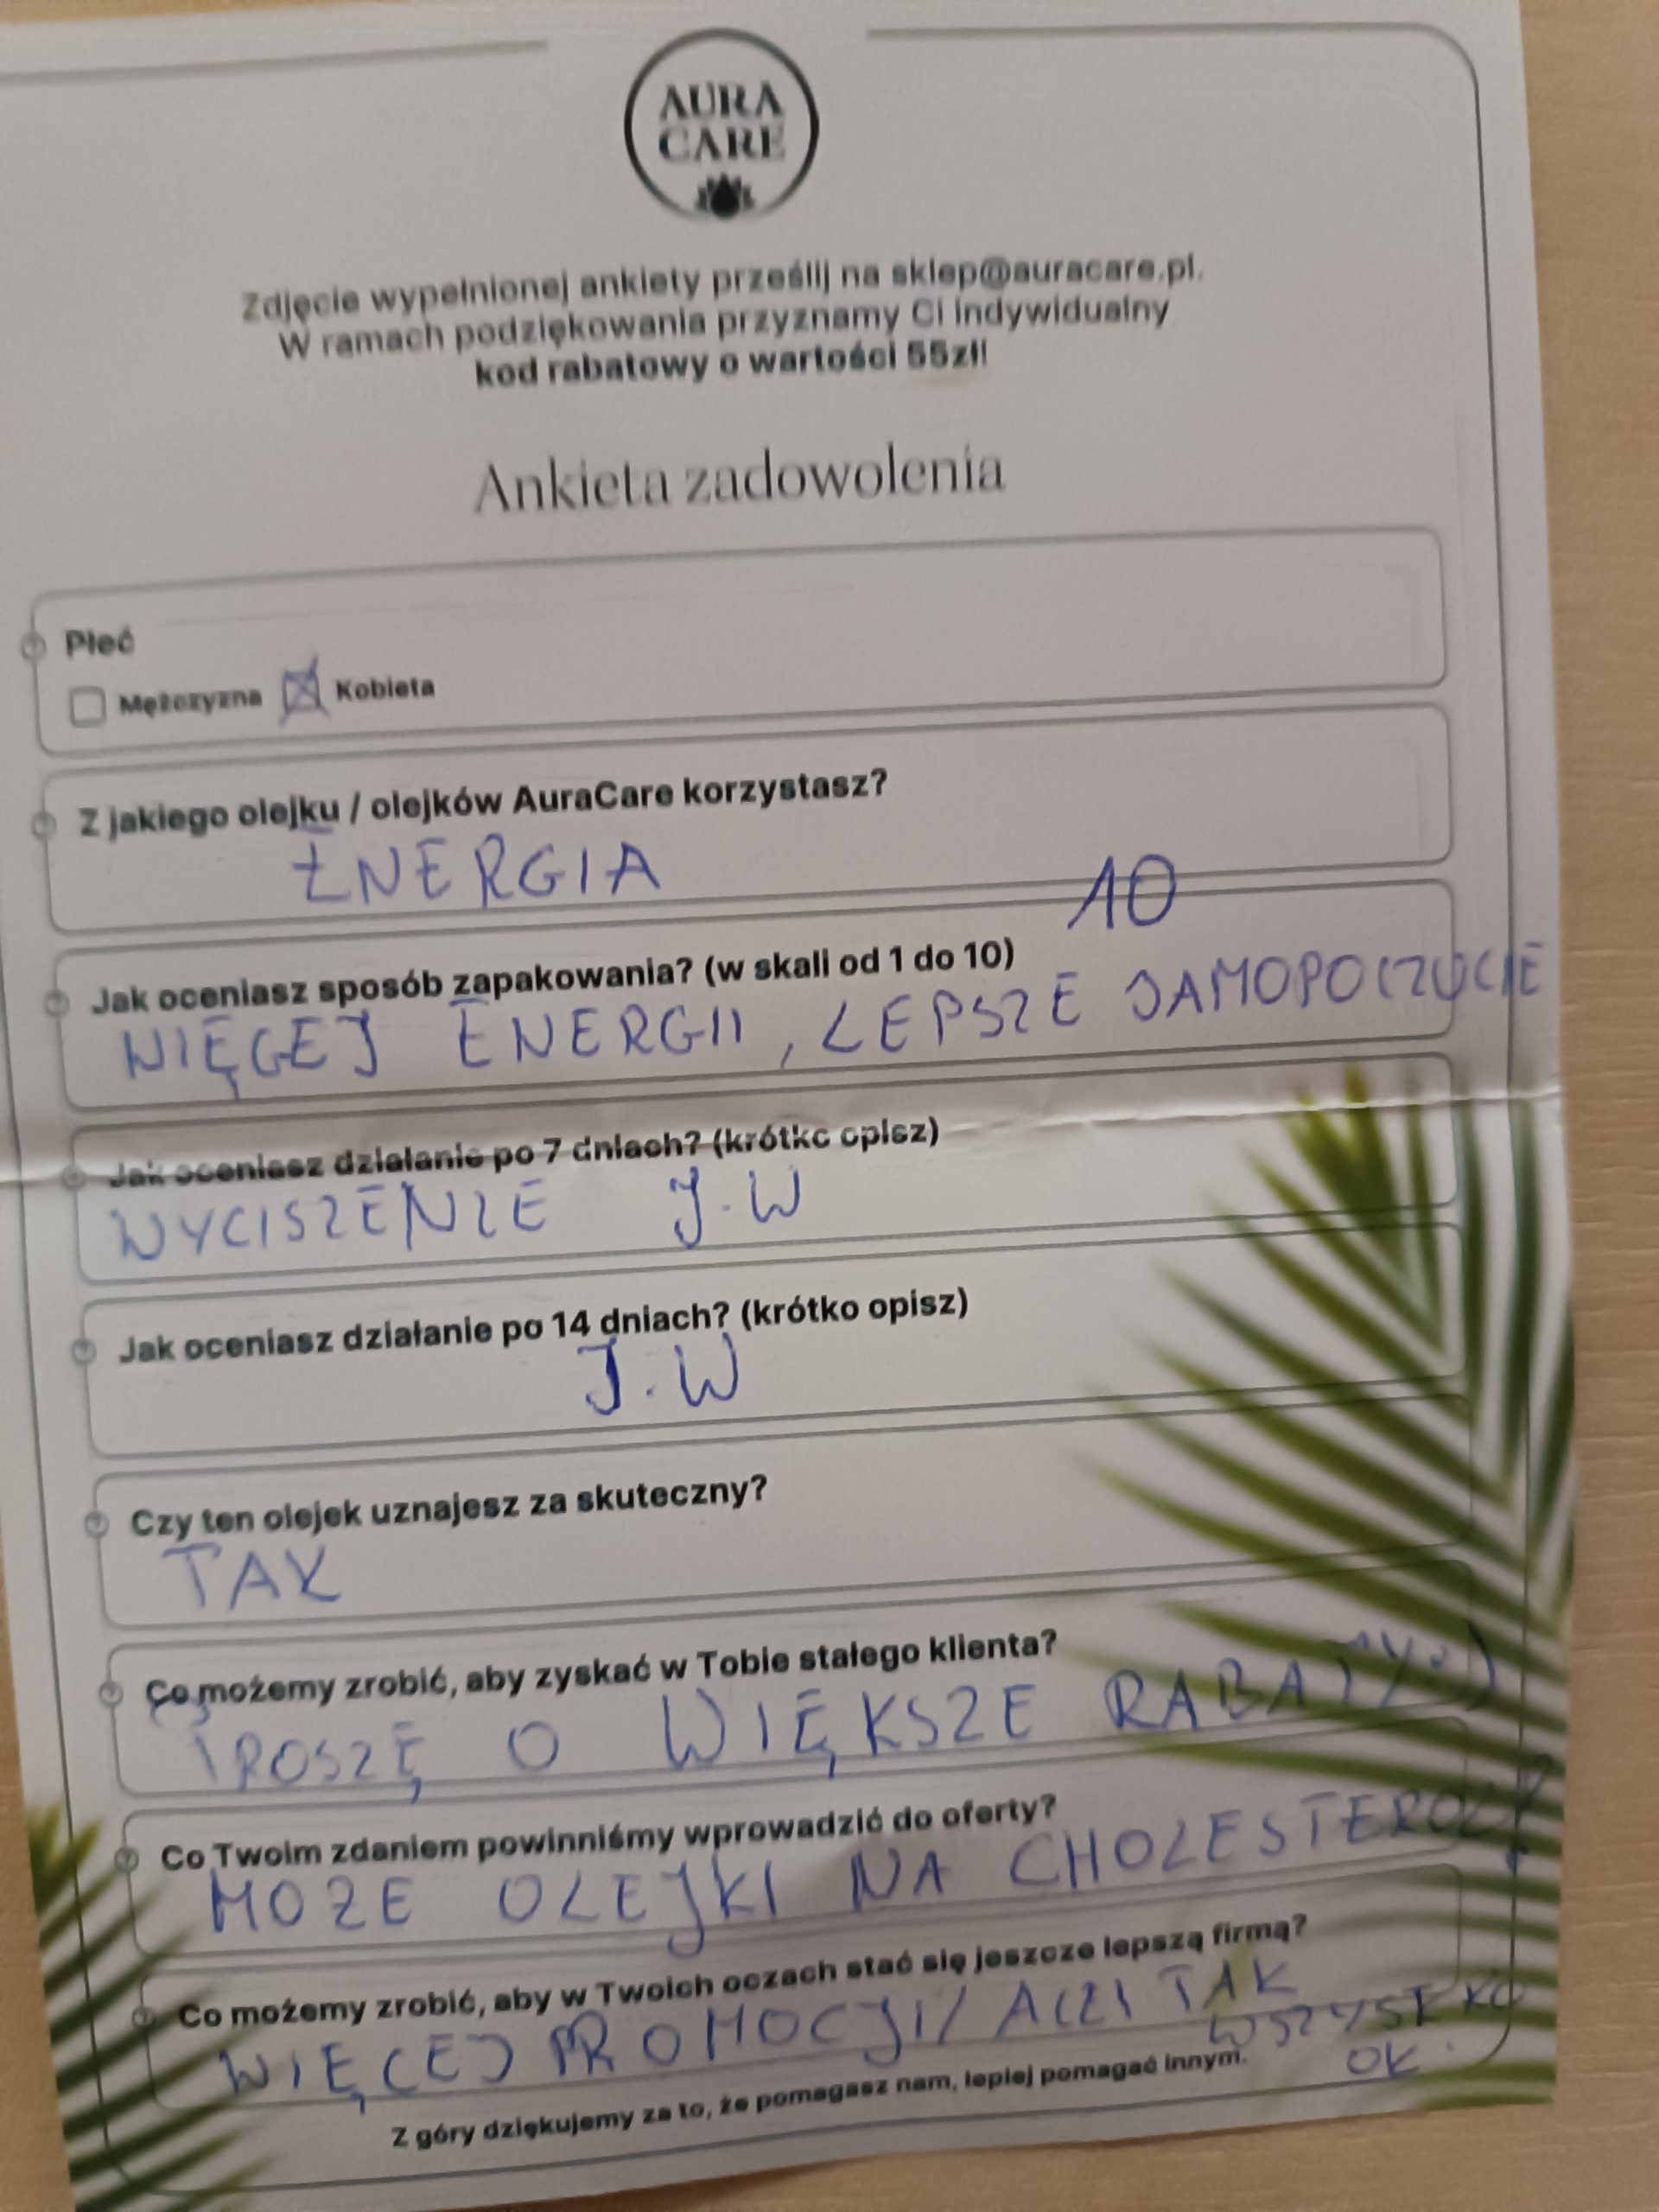 AURA
CARE
Zdjęcie wypełnionej ankiety prześlij na sklep@auracare.pl.
W ramach podziękowania przyznamy Ci indywidualny
kod rabatowy o wartości 55zł!
Ankieta zadowolenia
Płeć
Mężczyzna Kobieta
Z jakiego olejku / olejków AuraCare korzystasz?
ENERGIA
10
Jak oceniasz sposób zapakowania? (w skali od 1 do 10)
WIĘCEJ ENERGII, LEPSZE SAMOPOCZUCIE
Jak oceniasz działanie po 7 dniach? (krótko opisz)
WYCISZENIE J.W
Jak oceniasz działanie po 14 dniach? (krótko opisz)
J.W
Czy ten olejek uznajesz za skuteczny?
TAK
Co możemy zrobić, aby zyskać w Tobie stałego klienta?
PROSZĘ O WIĘKSZE RABATY:)
Co Twoim zdaniem powinniśmy wprowadzić do oferty?
MOZE OLEJKI NA CHOLESTEROL?
Co możemy zrobić, aby w Twoich oczach stać się jeszcze lepszą firmą?
WIĘCEJ PROMOCJI/ A TAK
WSZYSTKO
OK.
Z góry dziękujemy za to, że pomagasz nam, lepiej pomagać innym.